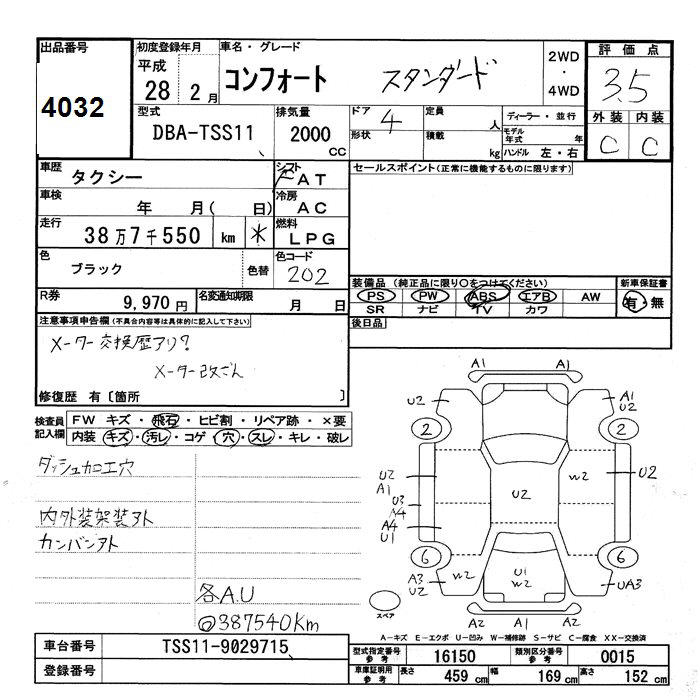 出品番号
4032
初度登録年月
平成
28 2 月
車名・グレード
コンフォート スタンダード
2WD
・
4WD
評価点
3.5
外装 内装
C C
型式
DBA-TSS11
排気量
2000
CC
ドア 4
形状
定員 人
積載 kg
ディーラー・並行
モデル年式 年
ハンドル 左・右
車歴
タクシー
シフト
FAT
車検
年 月( 日)
冷房
AC
走行
38万7千550 km *
燃料
LPG
色
ブラック
色替
色コード
202
R券
9,970円
名変通知期限
月 日
セールスポイント(正常に機能するものに限ります)
装備品 (純正品に限り○をつけてください)
PS PW ABS エアB AW
SR ナビ TV カワ
新車保証書
有・無
後日品
注意事項申告欄(不具合内容等は具体的に記入して下さい)
メーター交換歴アリ?
メーター改ざん
修復歴 有〔箇所 〕
検査員記入欄
FW キズ・飛石・ヒビ割・リペア跡・×要
内装 キズ・汚レ・コゲ・穴・スレ・キレ・破レ
ダッシュカロエ穴
内外装架装アト
カンバンアト
各A.U
@387540Km
A1 A1
U2 A1
U2
2 2
U2
A1
U2 W2 U2
U3
A4
A4
U1
6 6
A3
U2 W2 U1
W2 UA3
A2 A1 A2
スペア
A-キズ E-エクボ U-凹み W-補修跡 S-サビ C-腐食 XX-交換済
車台番号
TSS11-9029715
登録番号
型式指定番号
参考
16150
類別区分番号
参考
0015
車庫証明用
参考
長さ 459 cm 幅 169 cm 高さ 152 cm